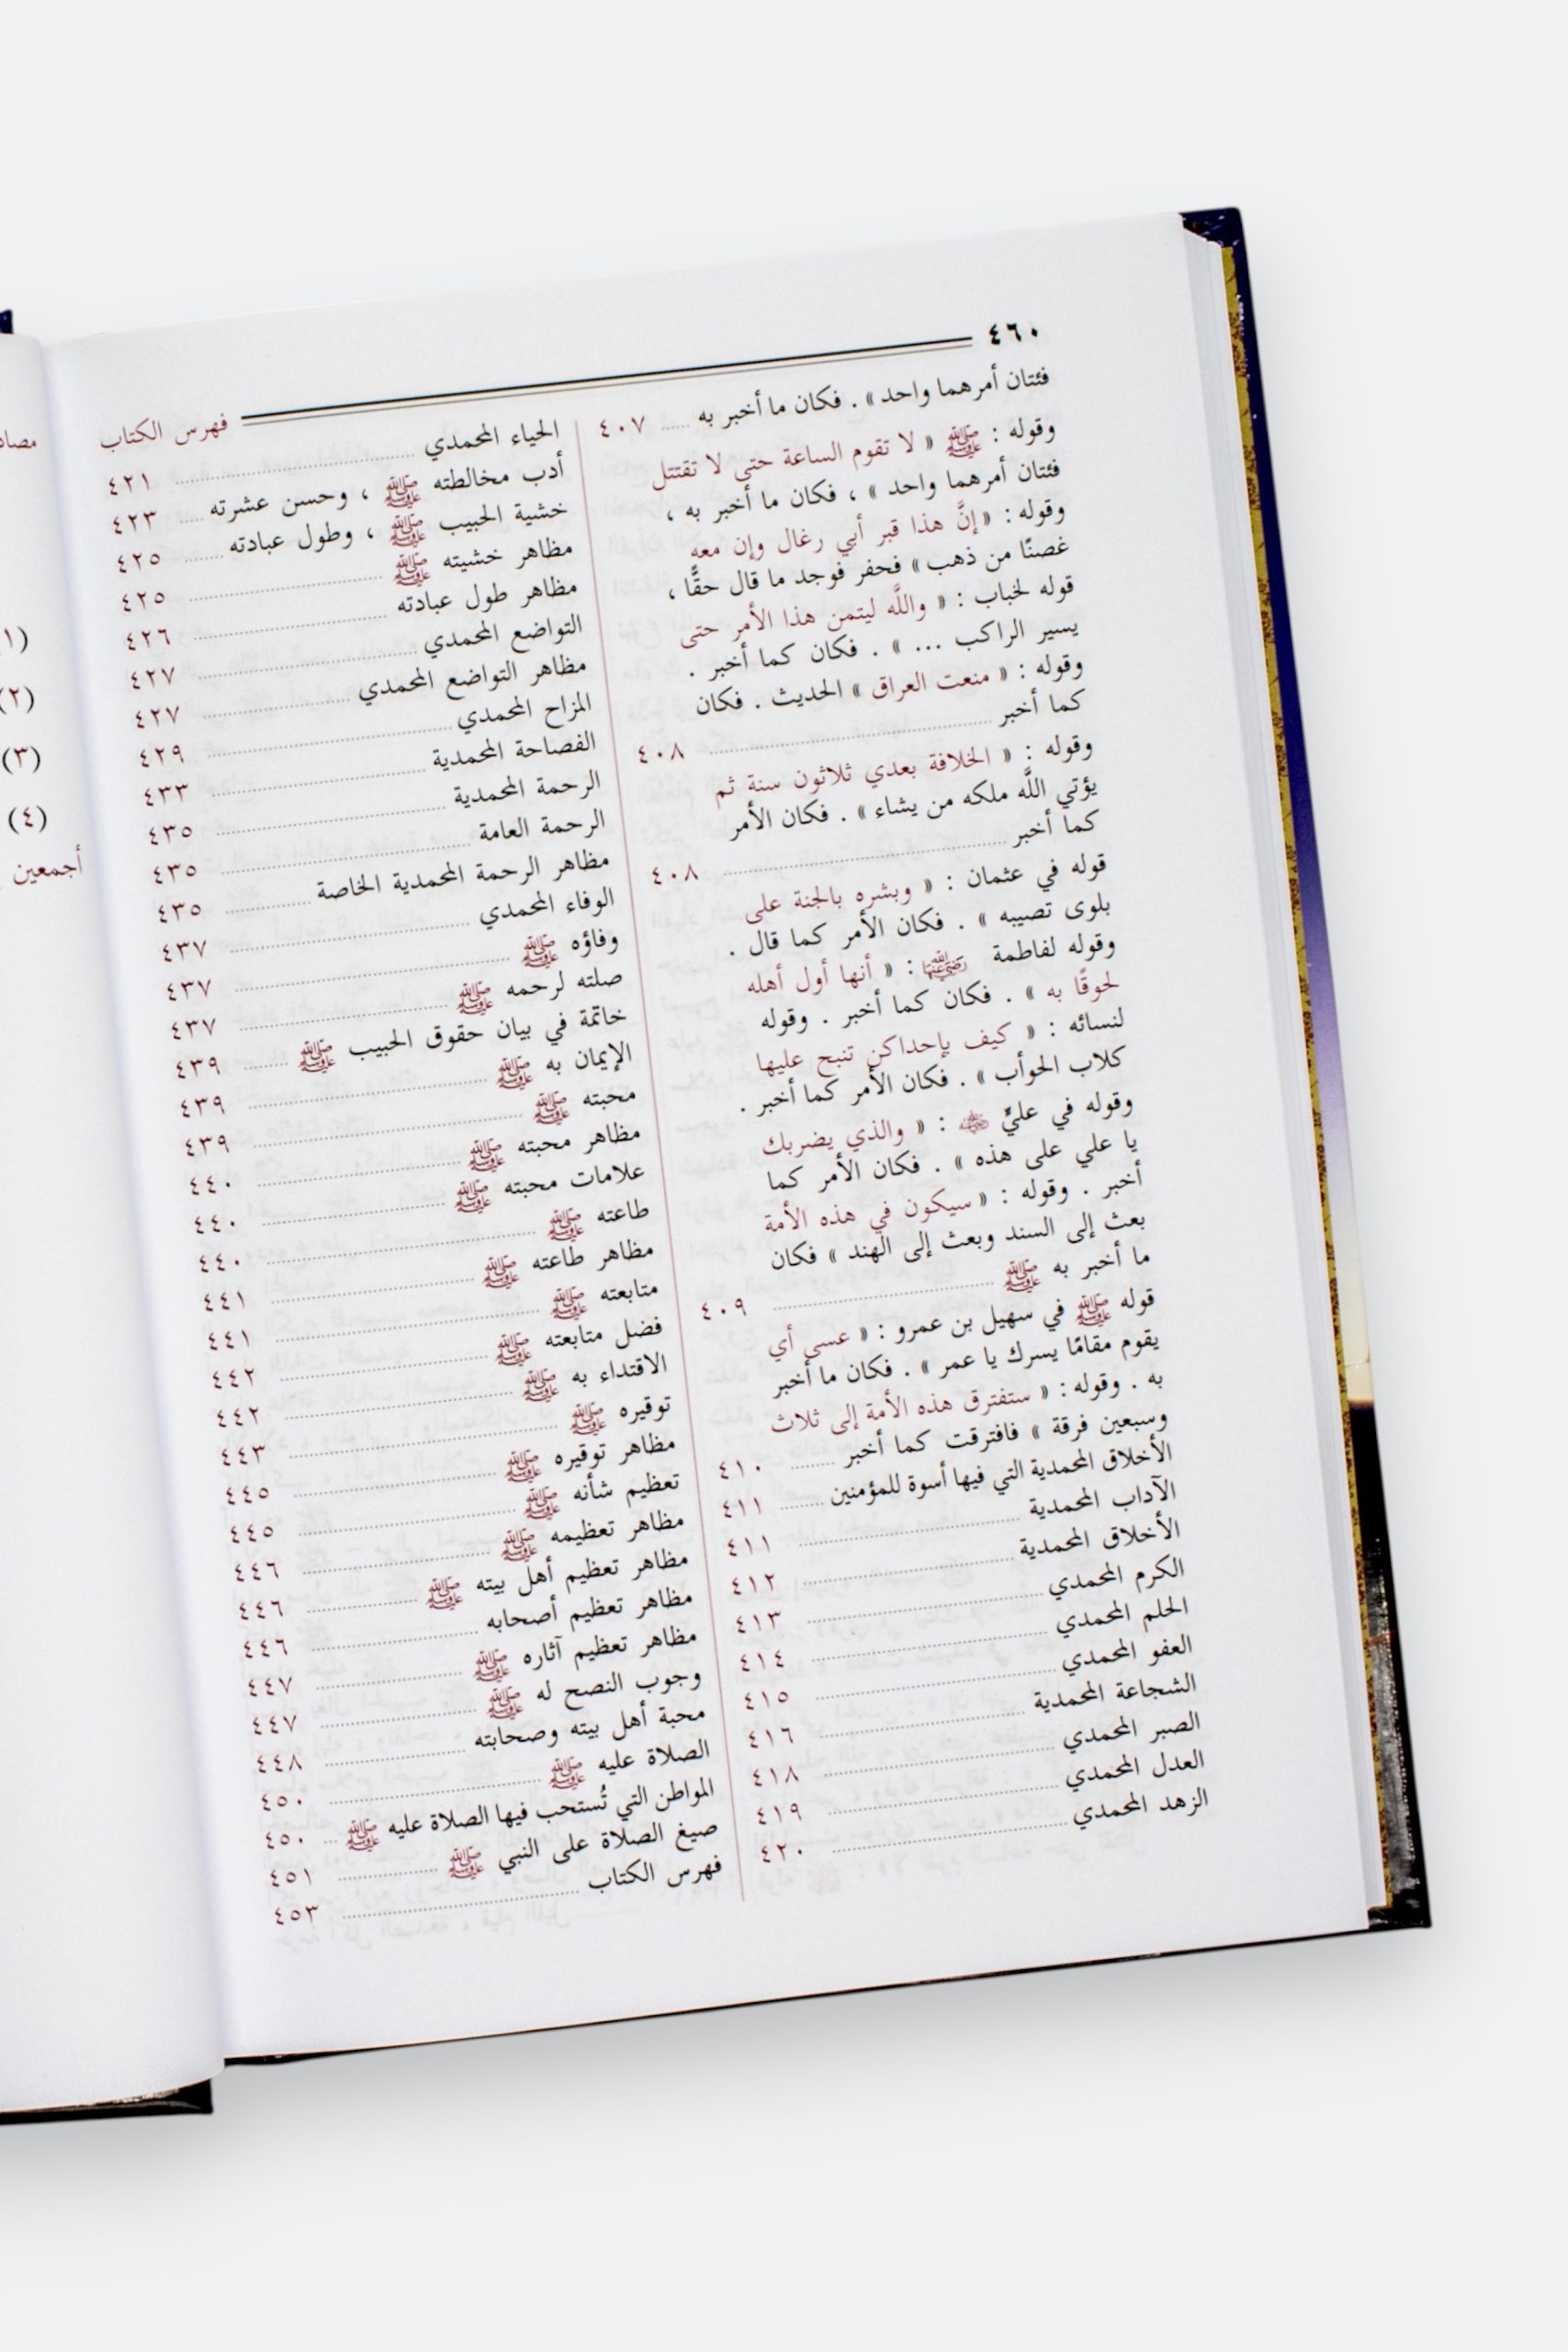 ٤٦٠
فهرس الكتاب
فئتان أمرهما واحد » . فكان ما أخبر به ...... ٤٠٧
وقوله : ﷺ « لا تقوم الساعة حتى لا تقتتل
فئتان أمرهما واحد » ، فكان ما أخبر به ،
وقوله : « إنَّ هذا قبر أبي رغال وإن معه
غصنًا من ذهب » فحفر فوجد ما قال حقًّا ،
قوله لخباب : « واللَّه ليتمن هذا الأمر حتى
يسير الراكب ... » . فكان كما أخبر .
وقوله : « منعت العراق » الحديث . فكان
كما أخبر ...... ٤٠٨
وقوله : « الخلافة بعدي ثلاثون سنة ثم
يؤتي اللَّه ملكه من يشاء » . فكان الأمر
كما أخبر ...... ٤٠٨
قوله في عثمان : « وبشره بالجنة على
بلوى تصيبه » . فكان الأمر كما قال .
وقوله لفاطمة رضي الله عنها : « أنها أول أهله
لحوقًا به » . فكان كما أخبر . وقوله
لنسائه : « كيف بإحداكن تنبح عليها
كلاب الحوأب » . فكان الأمر كما أخبر .
وقوله في عليٍّ : « والذي يضربك
يا علي على هذه » . فكان الأمر كما
أخبر . وقوله : « سيكون في هذه الأمة
بعث إلى السند وبعث إلى الهند » فكان
ما أخبر به ﷺ ...... ٤٠٩
قوله ﷺ في سهيل بن عمرو : « عسى أي
يقوم مقامًا يسرك يا عمر » . فكان ما أخبر
به . وقوله : « ستفترق هذه الأمة إلى ثلاث
وسبعين فرقة » فافترقت كما أخبر ...... ٤١٠
الأخلاق المحمدية التي فيها أسوة للمؤمنين ...... ٤١١
الآداب المحمدية ...... ٤١١
الأخلاق المحمدية ...... ٤١٢
الكرم المحمدي ...... ٤١٣
الحلم المحمدي ...... ٤١٤
العفو المحمدي ...... ٤١٥
الشجاعة المحمدية ...... ٤١٦
الصبر المحمدي ...... ٤١٨
العدل المحمدي ...... ٤١٩
الزهد المحمدي ...... ٤٢٠
الحياء المحمدي ...... ٤٢١
أدب مخالطته ﷺ ، وحسن عشرته ...... ٤٢٣
خشية الحبيب ﷺ ، وطول عبادته ...... ٤٢٥
مظاهر خشيته ﷺ ...... ٤٢٥
مظاهر طول عبادته ...... ٤٢٦
التواضع المحمدي ...... ٤٢٧
مظاهر التواضع المحمدي ...... ٤٢٧
المزاح المحمدي ...... ٤٢٩
الفصاحة المحمدية ...... ٤٣٣
الرحمة المحمدية ...... ٤٣٥
الرحمة العامة ...... ٤٣٥
مظاهر الرحمة المحمدية الخاصة ...... ٤٣٥
الوفاء المحمدي ...... ٤٣٧
وفاؤه ﷺ ...... ٤٣٧
صلته لرحمه ﷺ ...... ٤٣٧
خاتمة في بيان حقوق الحبيب ﷺ ...... ٤٣٩
الإيمان به ﷺ ...... ٤٣٩
محبته ﷺ ...... ٤٣٩
مظاهر محبته ﷺ ...... ٤٤٠
علامات محبته ﷺ ...... ٤٤٠
طاعته ﷺ ...... ٤٤٠
مظاهر طاعته ﷺ ...... ٤٤١
متابعته ﷺ ...... ٤٤١
فضل متابعته ﷺ ...... ٤٤٢
الاقتداء به ﷺ ...... ٤٤٢
توقيره ﷺ ...... ٤٤٣
مظاهر توقيره ﷺ ...... ٤٤٥
تعظيم شأنه ﷺ ...... ٤٤٥
مظاهر تعظيمه ﷺ ...... ٤٤٦
مظاهر تعظيم أهل بيته ﷺ ...... ٤٤٦
مظاهر تعظيم أصحابه ...... ٤٤٦
مظاهر تعظيم آثاره ﷺ ...... ٤٤٧
وجوب النصح له ﷺ ...... ٤٤٧
محبة أهل بيته وصحابته ...... ٤٤٨
الصلاة عليه ﷺ ...... ٤٥٠
المواطن التي تُستحب فيها الصلاة عليه ﷺ ... ٤٥٠
صيغ الصلاة على النبي ﷺ ...... ٤٥١
فهرس الكتاب ...... ٤٥٣
(٢)
(٣)
(٤)
أجمعين